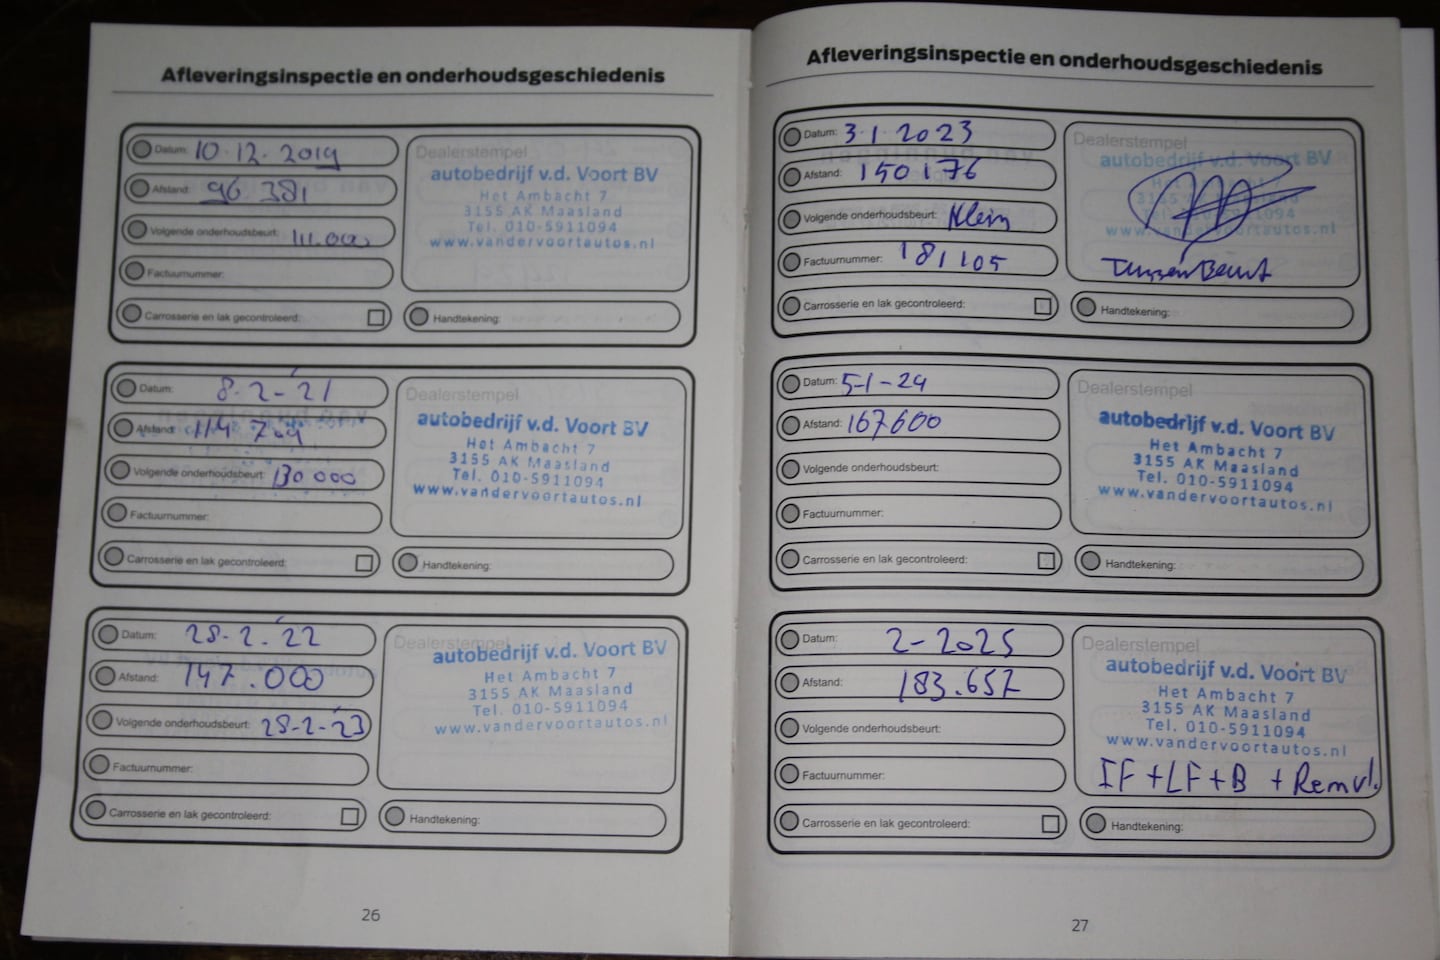 Afleveringsinspectie en onderhoudsgeschiedenis
Datum: 10.12.2019
Afstand: 96.381
Volgende onderhoudsbeurt: 111.000
Factuurnummer:
Carrosserie en lak gecontroleerd:
Dealerstempel
autobedrijf v.d. Voort BV
Het Ambacht 7
3155 AK Maasland
Tel. 010-5911094
www.vandervoortautos.nl
Handtekening:
Datum: 8-2-'21
Afstand: 114 709
Volgende onderhoudsbeurt: 130 000
Factuurnummer:
Carrosserie en lak gecontroleerd:
Dealerstempel
autobedrijf v.d. Voort BV
Het Ambacht 7
3155 AK Maasland
Tel. 010-5911094
www.vandervoortautos.nl
Handtekening:
Datum: 28-2-'22
Afstand: 147.000
Volgende onderhoudsbeurt: 28-2-'23
Factuurnummer:
Carrosserie en lak gecontroleerd:
Dealerstempel
autobedrijf v.d. Voort BV
Het Ambacht 7
3155 AK Maasland
Tel. 010-5911094
www.vandervoortautos.nl
Handtekening:
26
Afleveringsinspectie en onderhoudsgeschiedenis
Datum: 3-1-2023
Afstand: 150176
Volgende onderhoudsbeurt: Klein
Factuurnummer: 181105
Carrosserie en lak gecontroleerd:
Dealerstempel
autobedrijf v.d. Voort BV
3155 AK
Tel. 010-5911094
www.vandervoortautos.nl
TussenBeurt
Handtekening:
Datum: 5-1-24
Afstand: 167600
Volgende onderhoudsbeurt:
Factuurnummer:
Carrosserie en lak gecontroleerd:
Dealerstempel
autobedrijf v.d. Voort BV
Het Ambacht 7
3155 AK Maasland
Tel. 010-5911094
www.vandervoortautos.nl
Handtekening:
Datum: 2-2025
Afstand: 183.657
Volgende onderhoudsbeurt:
Factuurnummer:
Carrosserie en lak gecontroleerd:
Dealerstempel
autobedrijf v.d. Voort BV
Het Ambacht 7
3155 AK Maasland
Tel. 010-5911094
www.vandervoortautos.nl
IF + LF + B + Remvl.
Handtekening:
27